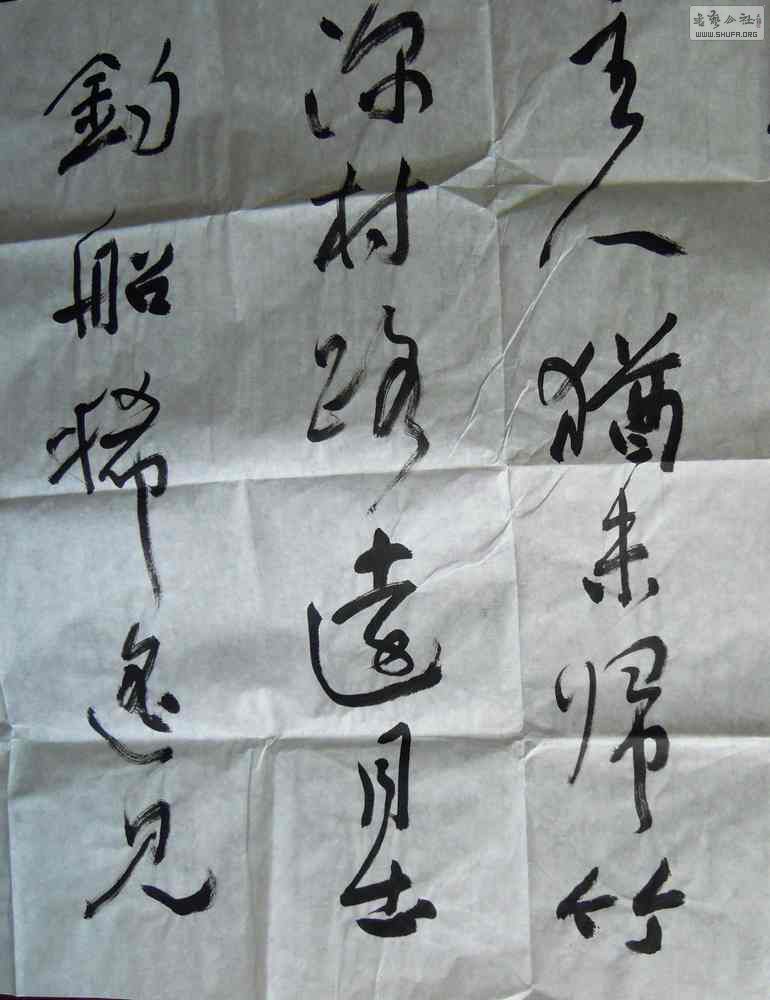 主人猶未帰竹
深村路遠月出
釣船稀遥見
书艺公社
WWW.SHUFA.ORG